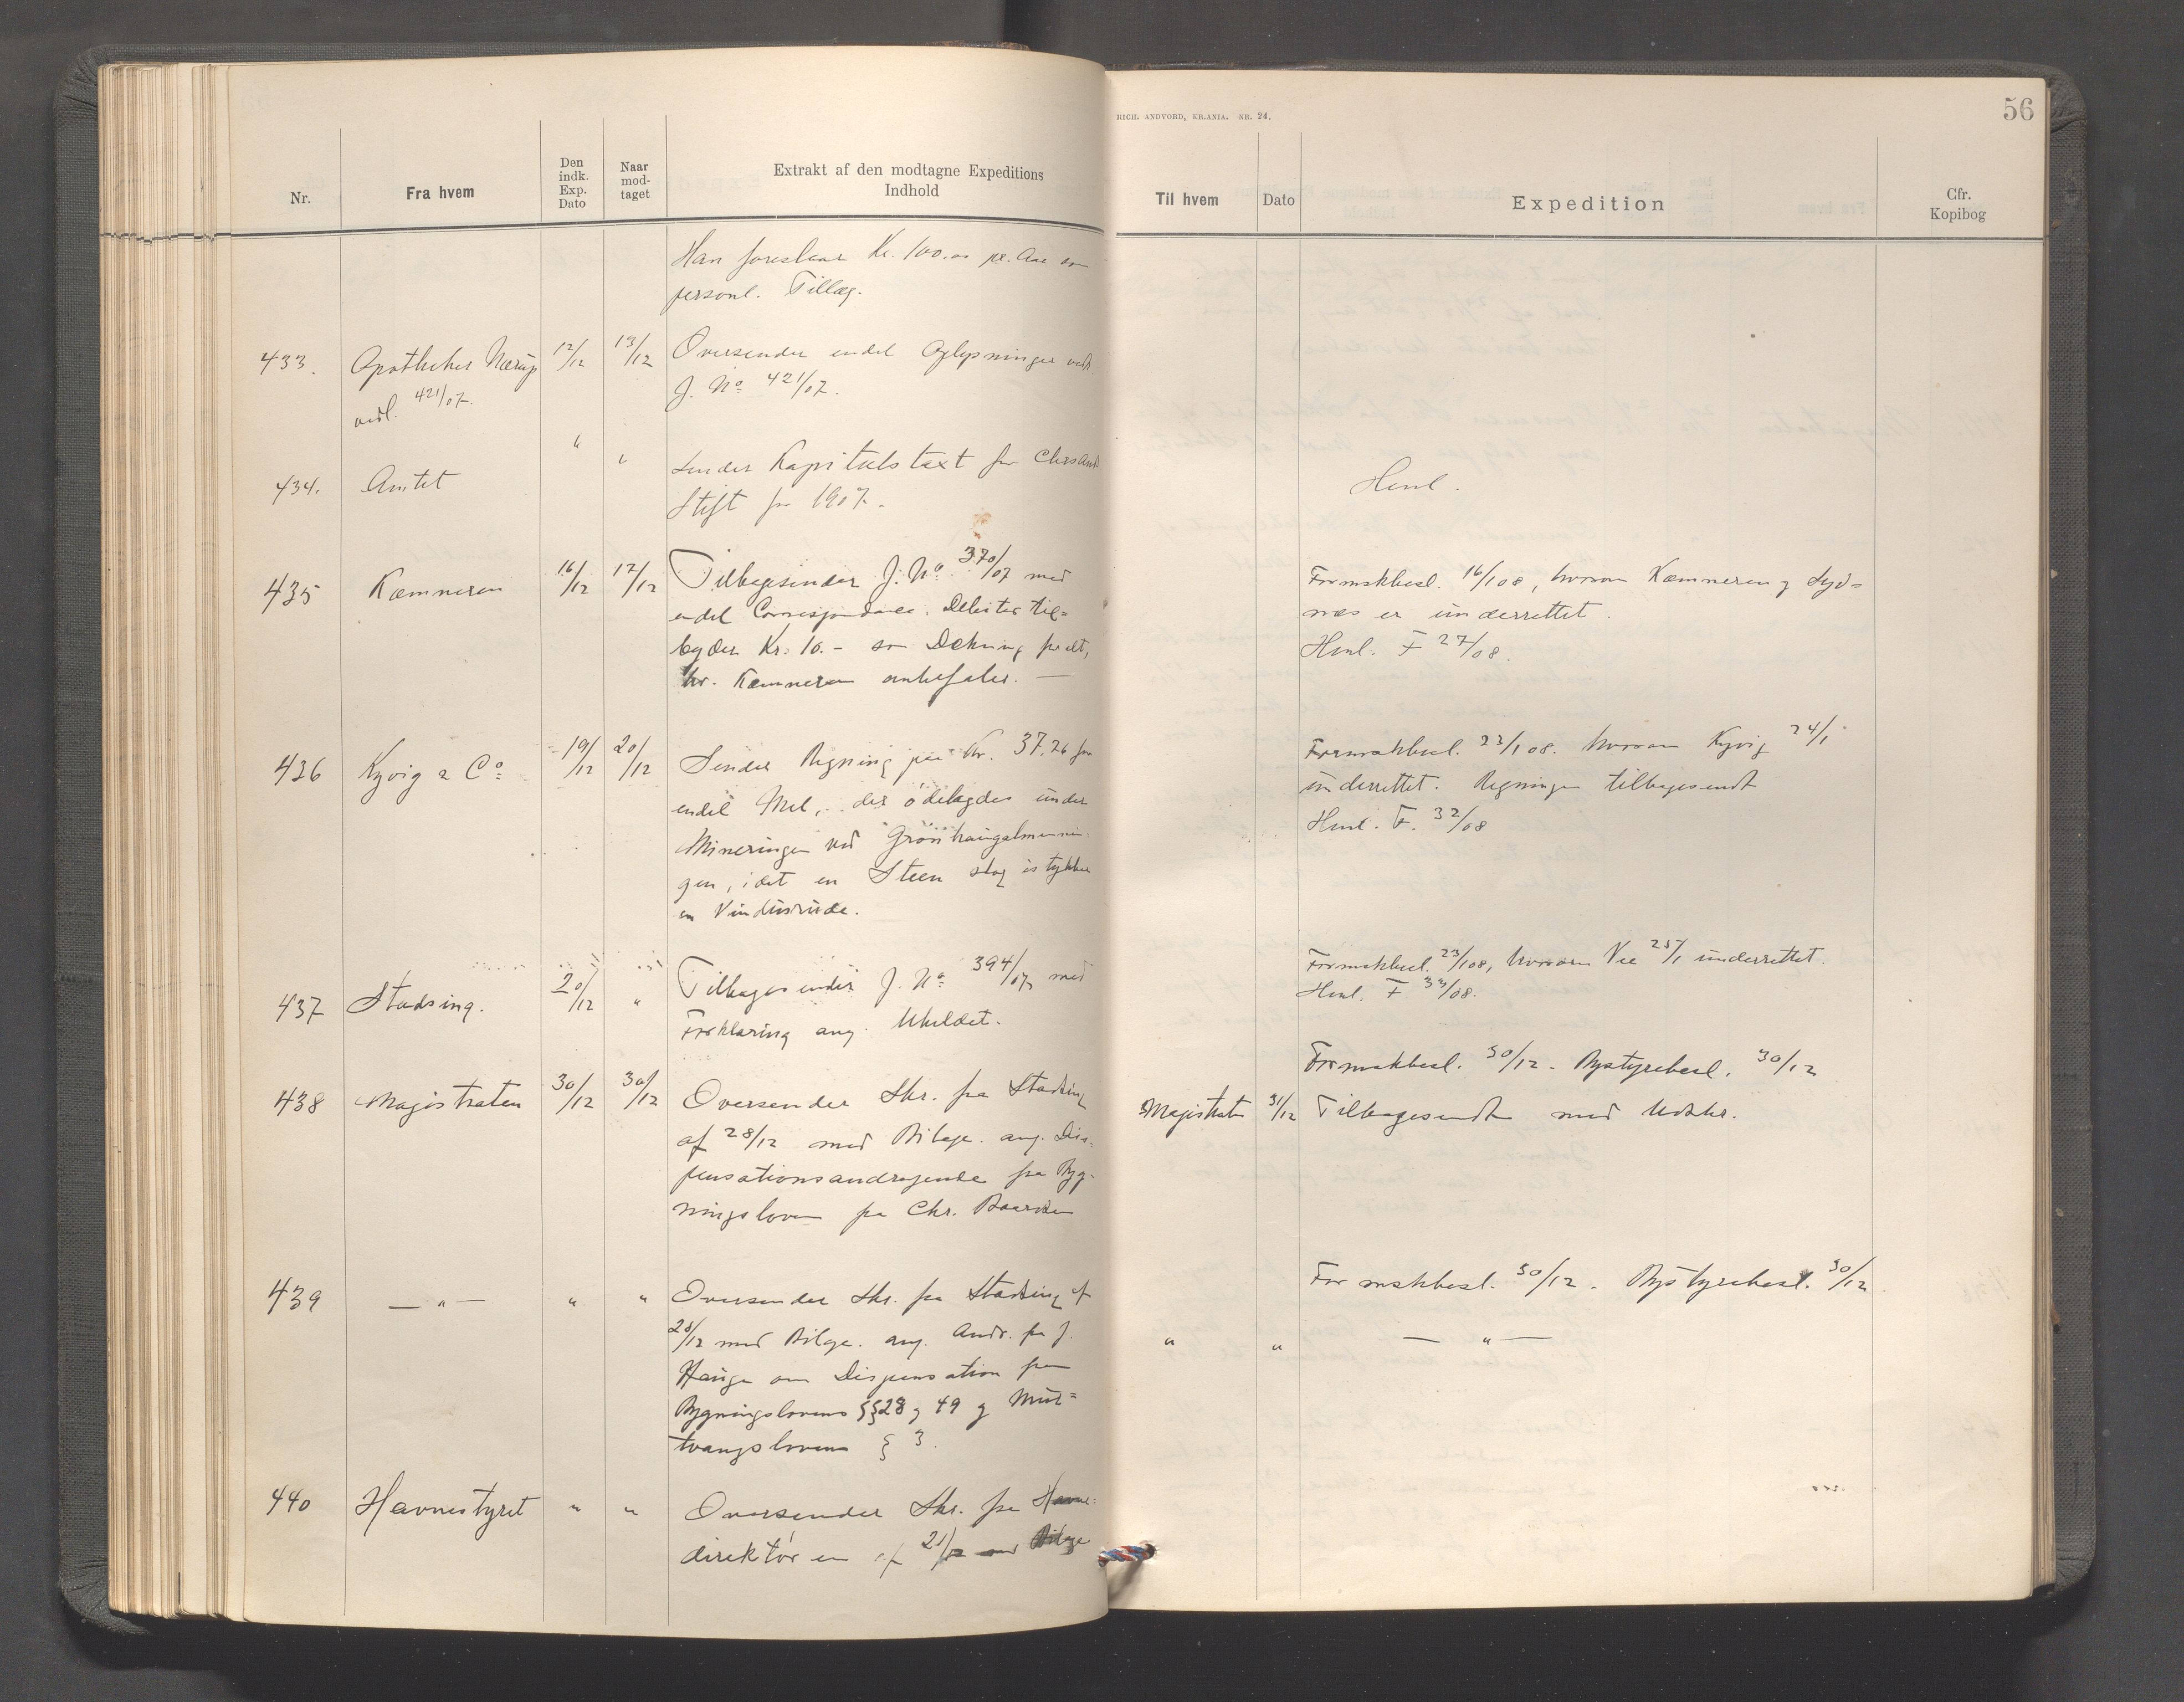 RICH. ANDVORD, KR.ANIA. NR. 24.
56
Nr.
Fra hvem
Den indk. Exp. Dato
Naar mod-taget
Extrakt af den modtagne Expeditions
Indhold
Til hvem
Dato
Expedition
Cfr.
Kopibog
Han foreslaar Kr. 100.00 pr. Aar som
personl. Tillæg.
433. Apotheker Nærup 12/12 13/12 Oversender endel Oplysninger vedr.
vedl. 421/07. J. No 421/07.
434. Amtet " " Sender Kapitelstaxt for Chrsand
Stift for 1907.
Henl.
435 Kæmneren 16/12 17/12 Tilbagesender J. No 370/07 med
endel Correspondance. Debitor til=
byder Kr. 10.- som Dekning for alt,
hv. Kæmneren anbefaler. —
Formskbesl. 16/1 08, hvorom Kæmneren og Syd=
næs er underrettet.
Henl. F 27/08.
436 Kyvig & Co 19/12 20/12 Sender Regning paa Kr. 37.26 for
endel Mel, der ödelagdes under
Mineringen ved Grönhaugalmennin-
gen, idet en Steen slog istykker
en Vindusrude.
Formskbesl. 22/1 08. hvorom Kyvig 24/1
underrettet. Regningen tilbagesendt
Henl. F. 32/08
437 Stadsing. 20/12 " Tilbagesender J. No 394/07 med
Forklaring ang. Uheldet.
Formskbesl. 23/1 08, hvorom Vee 25/1 underrettet.
Henl. F 33/08.
438 Magistraten 30/12 30/12 Oversender Skr. fra Stadsing
af 28/12 med Bilage. ang. Dis-
pensationsandragende fra Byg-
ningsloven fra Chr. Baardsen
Formskbesl. 30/12 - Bystyrebesl. 30/12
Magistraten 31/12 Tilbagesendt med Udskr.
439 — " — " " Oversender Skr. fra Stadsing af
28/12 med Bilage. ang. Andr. fra J.
Hauge om Dispensation fra
Bygningslovens §§ 28 og 49 og Mur=
tvangslovens § 3.
Formskbesl. 30/12. Bystyrebesl. 30/12
" " — " —
440 Havnestyret " " Oversender Skr. fra Havne-
direktören af 21/12 med Bilage